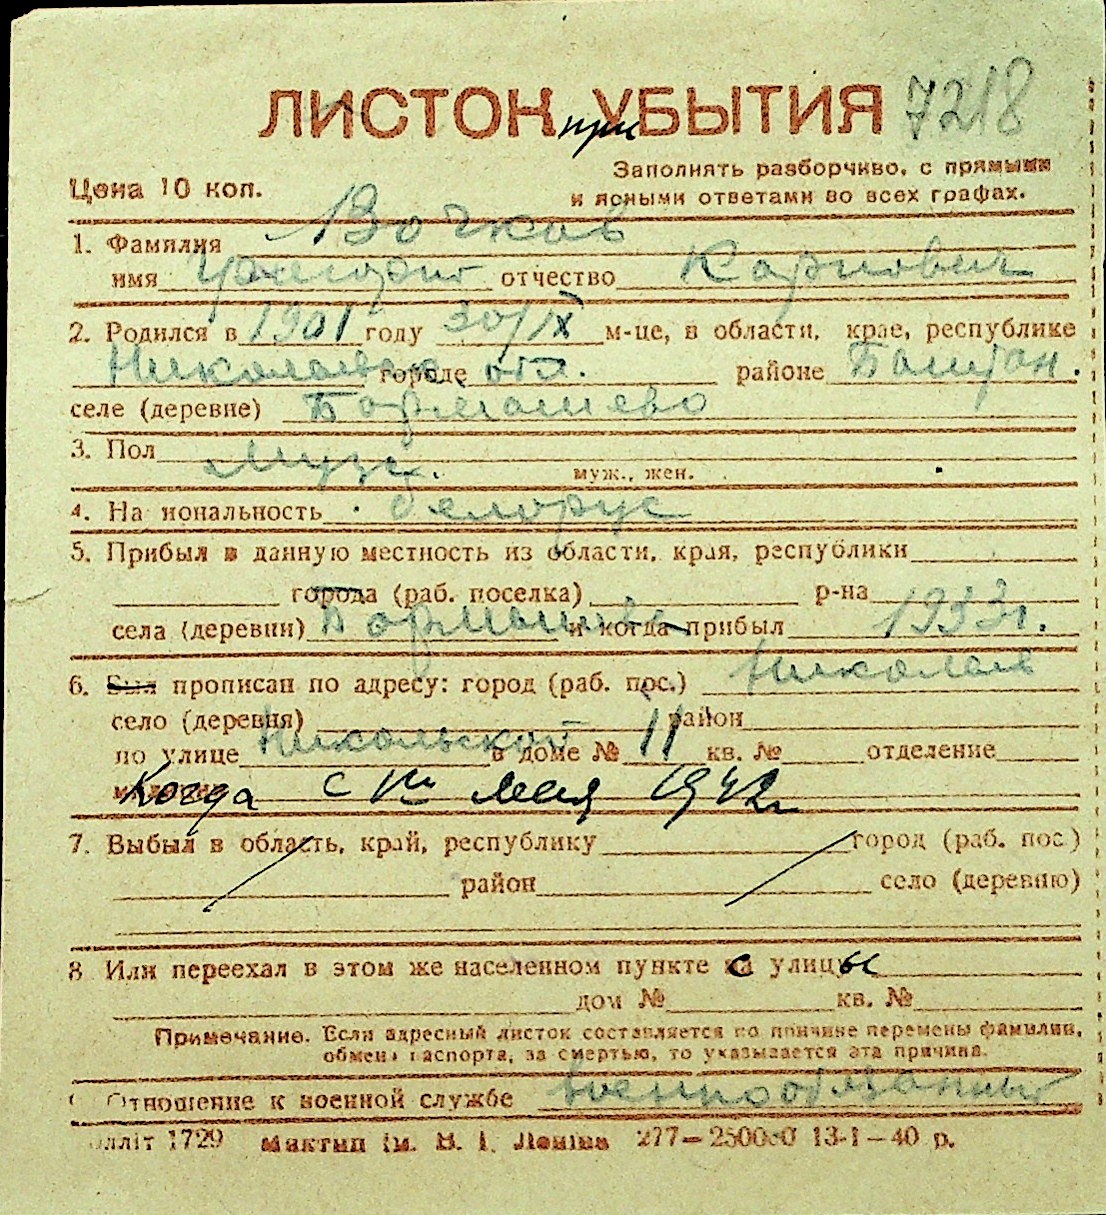 ЛИСТОК при УБЫТИЯ 7218
Цена 10 коп.
Заполнять разборчиво, с прямыми
и ясными ответами во всех графах.
1. Фамилия Вочков
имя Григорий отчество Карпович
2. Родился в 1901 году 30/IX м-це, в области, крае, республике
Николаевск городе обл. районе Баштан.
селе (деревне) Бармашево
3. Пол Муж.
муж., жен.
4. На иональность белорус
5. Прибыл в данную местность из области, края, республики
города (раб. поселка) р-на
села (деревни) и когда прибыл 1933г.
6. Был прописан по адресу: город (раб. пос.) Николаев
село (деревня) район
по улице Никольской в доме № 11 кв. № отделение
Когда с 1го мая 1942г
7. Выбыл в область, край, республику город (раб. пос)
район село (деревню)
8 Или переехал в этом же населенном пункте с улицы
дом № кв. №
Примечание. Если адресный листок составляется по причине перемены фамилии,
обмена паспорта, за смертью, то указывается эта причина.
Отношение к военной службе Военнообязанный
лліт 1729 Миктип ім. В. І. Леніна 277—250000 13-1—40 р.